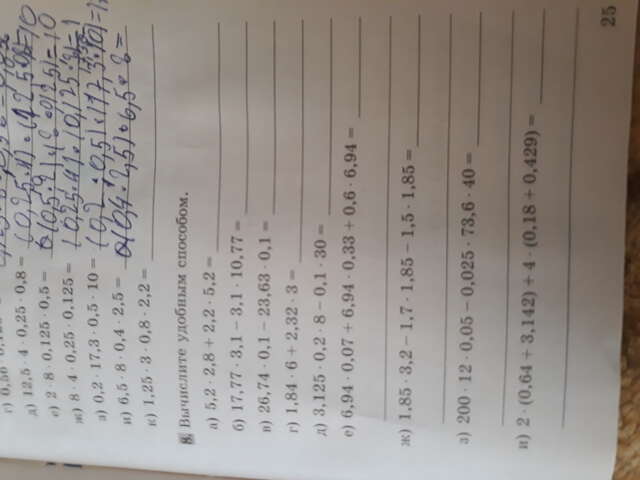 д) 12,5 · 4 · 0,25 · 0,8 = (0,25·4)·(12,5·0,8)=10
е) 2 · 8 · 0,125 · 0,5 = (0,5·2)·(8·0,125)=10
ж) 8 · 4 · 0,25 · 0,125 = (0,25·4)·(0,125·8)=1
з) 0,2 · 17,3 · 0,5 · 10 = (0,2·0,5)·(17,3·10)=
и) 6,5 · 8 · 0,4 · 2,5 = (0,4·2,5)·6,5·8=
к) 1,25 · 3 · 0,8 · 2,2 =
8. Вычислите удобным способом.
а) 5,2 · 2,8 + 2,2 · 5,2 =
б) 17,77 · 3,1 − 3,1 · 10,77 =
в) 26,74 · 0,1 − 23,63 · 0,1 =
г) 1,84 · 6 + 2,32 · 3 =
д) 3,125 · 0,2 · 8 − 0,1 · 30 =
е) 6,94 · 0,07 + 6,94 · 0,33 + 0,6 · 6,94 =
ж) 1,85 · 3,2 − 1,7 · 1,85 − 1,5 · 1,85 =
з) 200 · 12 · 0,05 − 0,025 · 73,6 · 40 =
и) 2 · (0,64 + 3,142) + 4 · (0,18 + 0,429) =
25